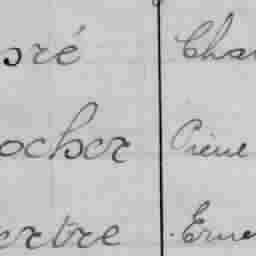 sré Cha
ocher Pierre
ertre Erne